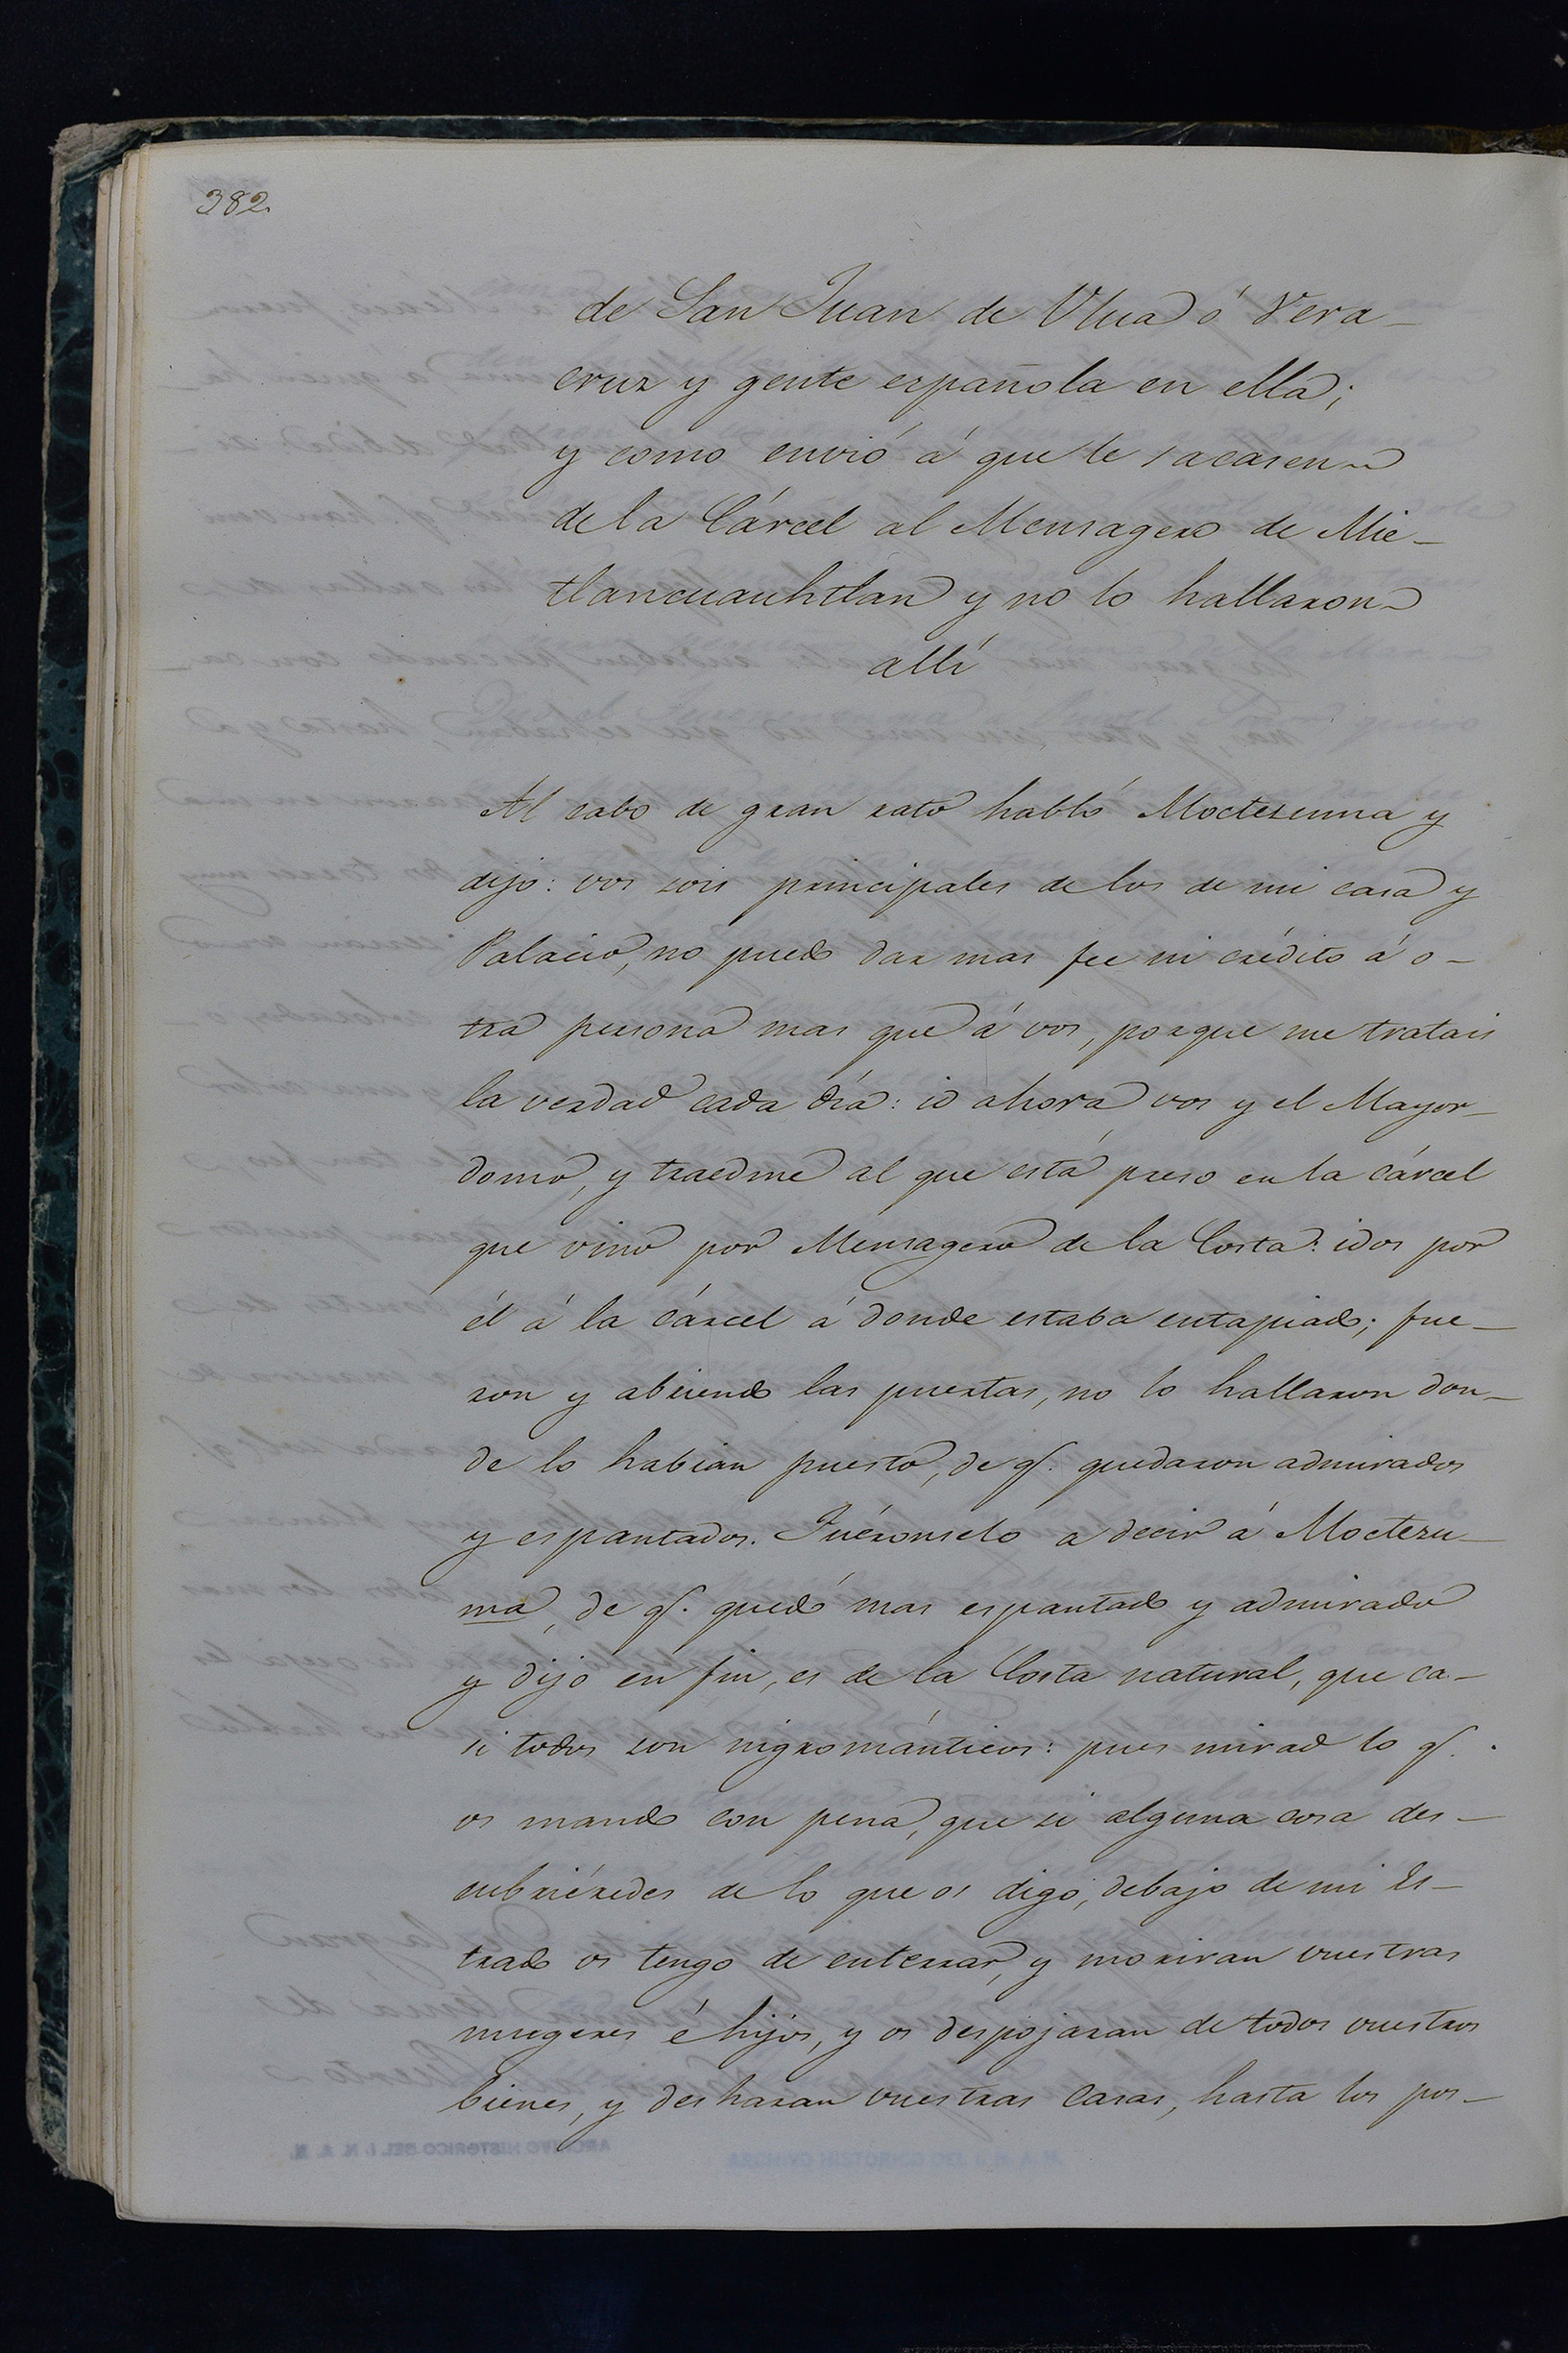 382.
de San Juan de Ulua ó Vera-
cruz y gente española en ella;
y como envió á que le sacasen
de la Cárcel al Mensagero de Mic-
tlancuauhtlan y no lo hallaron
allí
Al cabo de gran rato habló Moctezuma y
dijo: vos sois principales de los de mi casa y
Palacio, no puedo dar mas fee ni crédito á o-
tra persona mas que á vos, porque me tratais
la verdad cada dia: id ahora vos y el Mayor-
domo, y traedme al que está preso en la cárcel
que vino por Mensagero de la Costa: idos por
él á la cárcel á donde estaba entapiado; fue-
ron y abriendo las puertas, no lo hallaron don-
de lo habian puesto, de q. quedaron admirados
y espantados. Fuéronselo a decir á Moctezu-
ma, de q. quedó mas espantado y admirado
y dijo en fin, es de la Costa natural, que ca-
si todos son nigrománticos: pues mirad lo q.
os mando con pena, que si alguna cosa des-
cubriéredes de lo que os digo, debajo de mi Es-
trado os tengo de enterrar, y moriran vuestras
mugeres é hijos, y os despojaran de todos vuestros
bienes, y desharan vuestras casas, hasta los pos-
ARCHIVO HISTORICO DEL I. N. A. H.